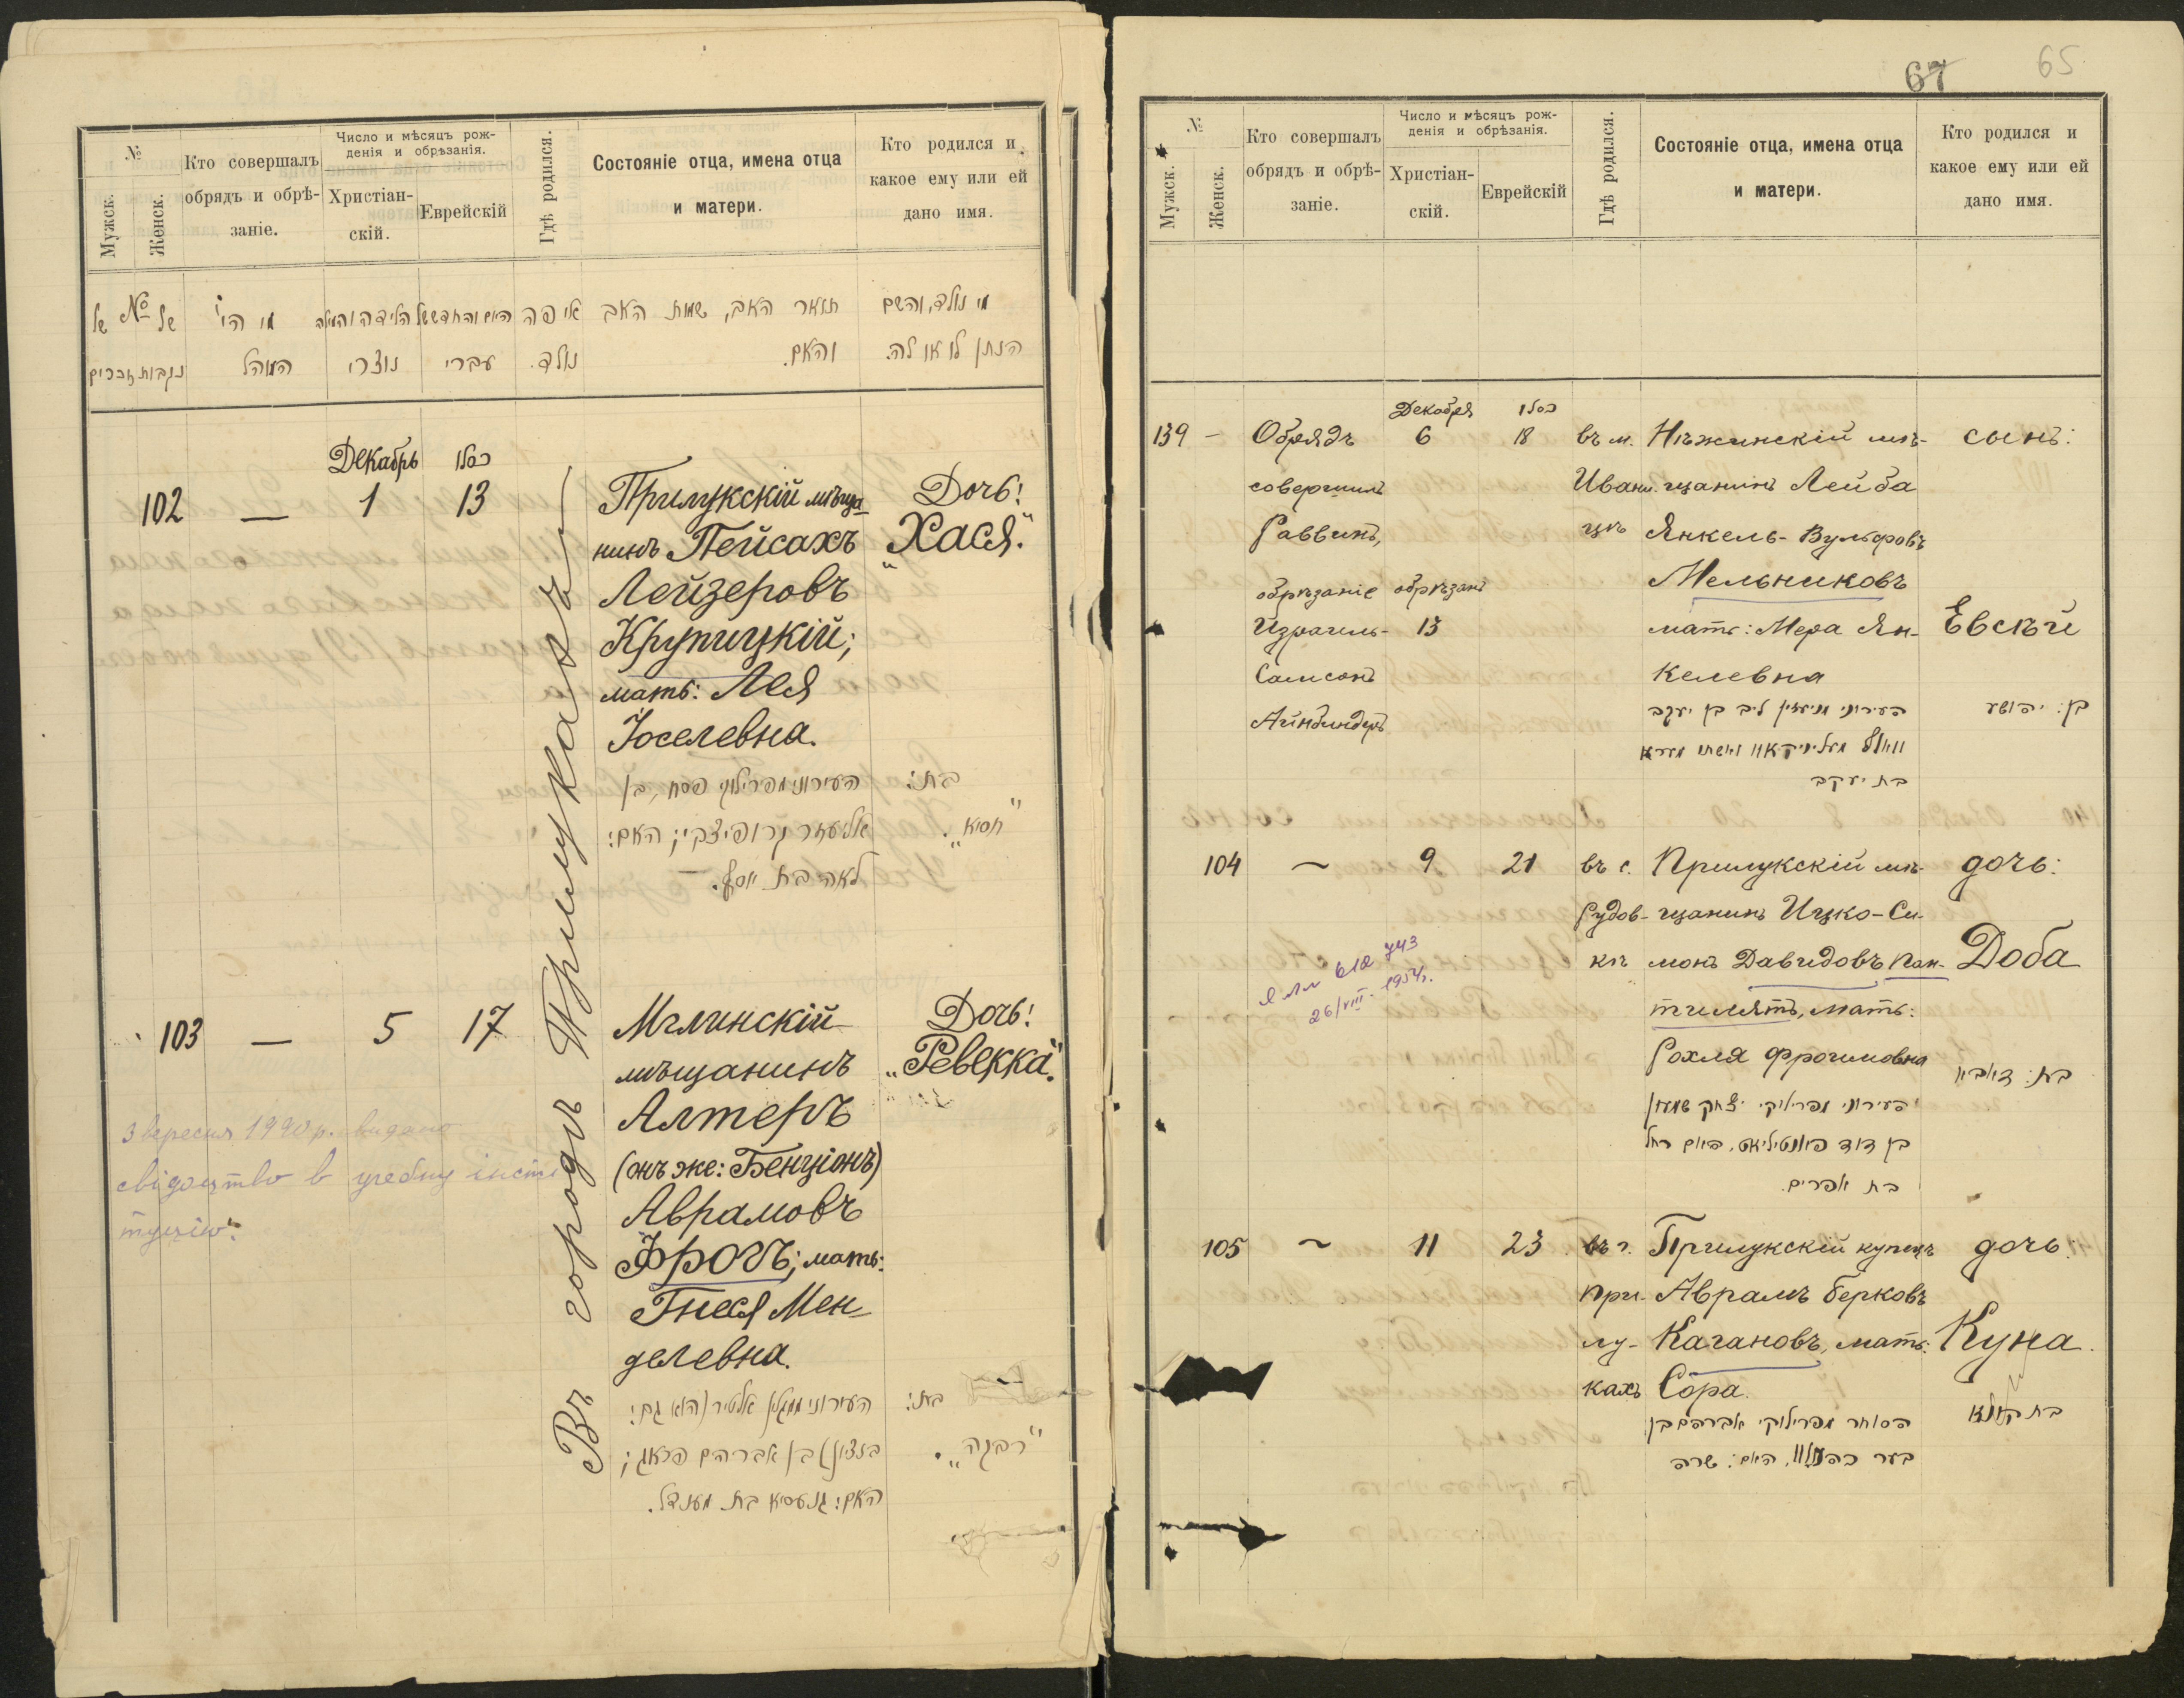 №
Мужск.
Женск.
Кто совершалъ
обрядъ и обрѣ-
заніе.
Число и мѣсяцъ рож-
денія и обрѣзанія.
Христіан-
скій.
Еврейскій
Гдѣ родился.
Состояніе отца, имена отца
и матери.
Кто родился и
какое ему или ей
дано имя.
של № של
נקבות זכרים
מי הי'
המוהל
היום והחדש של הלידה והמילה
נוצרי
עברי
איפה
נולד.
תואר האב, שמות האב
והאם.
מי נולד, והשם
הנתן לו או לה.
Декабрь
כסלו
102 — 1 13
Въ городѣ Прилукахъ
Прилукскій мѣща-
нинъ Пейсахъ
Лейзеровъ
Крупицкій;
мать: Лея
Іоселевна.
העירוני מפרילוקי פסח, בן
אליעזר קרופיצקי; האם:
לאה בת יוסף.
Дочь:
„Хася".
בת:
"חסיא".
103 — 5 17
Мглинскій
мѣщанинъ
Алтеръ
(онъ же: Бенціонъ)
Аврамовъ
Фрогъ; мать:
Гнеся Мен-
делевна.
העירוני ממגלין אלטיר (הוא גם:
בנציון) בן אברהם פראג;
האם: גנעסיא בת מענדל.
Дочь:
„Ревекка".
בת:
"רבקה".
3 вересня 1990 р. видано
свідоцтво в учебну інсти
туцію.
67 65
№
Мужск.
Женск.
Кто совершалъ
обрядъ и обрѣ-
заніе.
Число и мѣсяцъ рож-
денія и обрѣзанія.
Христіан-
скій.
Еврейскій
Гдѣ родился.
Состояніе отца, имена отца
и матери.
Кто родился и
какое ему или ей
дано имя.
Декабря
כסלו
139 – Обрядъ 6 18
совершилъ
Раввинъ,
обрѣзаніе обрѣзанъ
Израиль- 13
Самсонъ
Айнбиндеръ
въ м.
Ивани-
цѣ
Нѣжинскій мѣ-
щанинъ Лейба
Янкель-Вульфовъ
Мельниковъ
мать: Мера Ян-
келевна
העירוני מניעזין ליב בן יעקב
וואלף מעלניקאוו ואשתו מערא
בת יעקב
сынъ:
Евсѣй
בן: יהושע
104 ~ 9 21
въ с.
Рудов-
кѣ
Прилукскій мѣ-
щанинъ Ицко-Си-
монъ Давидовъ Пан-
тилятъ, мать:
Рохля Фроимовна
העירוני מפרילוקי יצחק שמעון
בן דוד פאנטיליאט, האם רחל
בת אפרים.
дочь:
Доба
בת: דאבא
26/VIII. 1954г.
105 ~ 11 23
въ г.
При-
лу-
кахъ
Прилукскій купецъ
Аврамъ Берковъ
Кагановъ, мать:
Сора.
הסוחר מפרילוקי אברהם בן
בער כהנאוו, האם: שרה
дочь:
Куна.